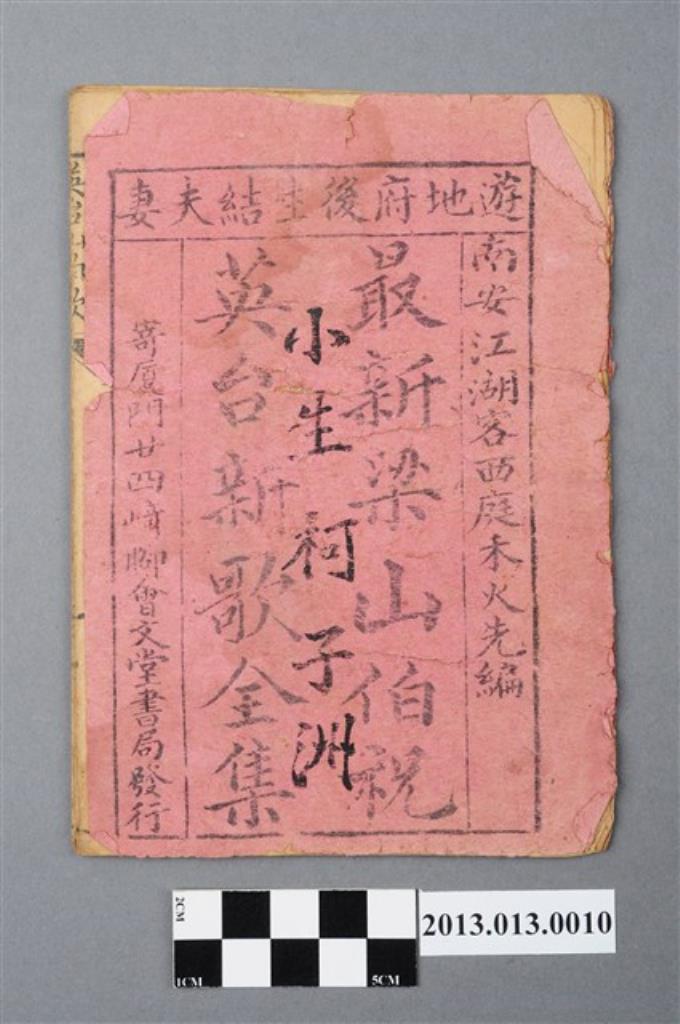 遊地府後生結夫妻
南安江湖客西庭木火先編
最新梁山伯祝
英台新歌全集
小生柯子洲
寄厦門廿四崎腳會文堂書局發行
2CM
1CM
5CM
2013.013.0010